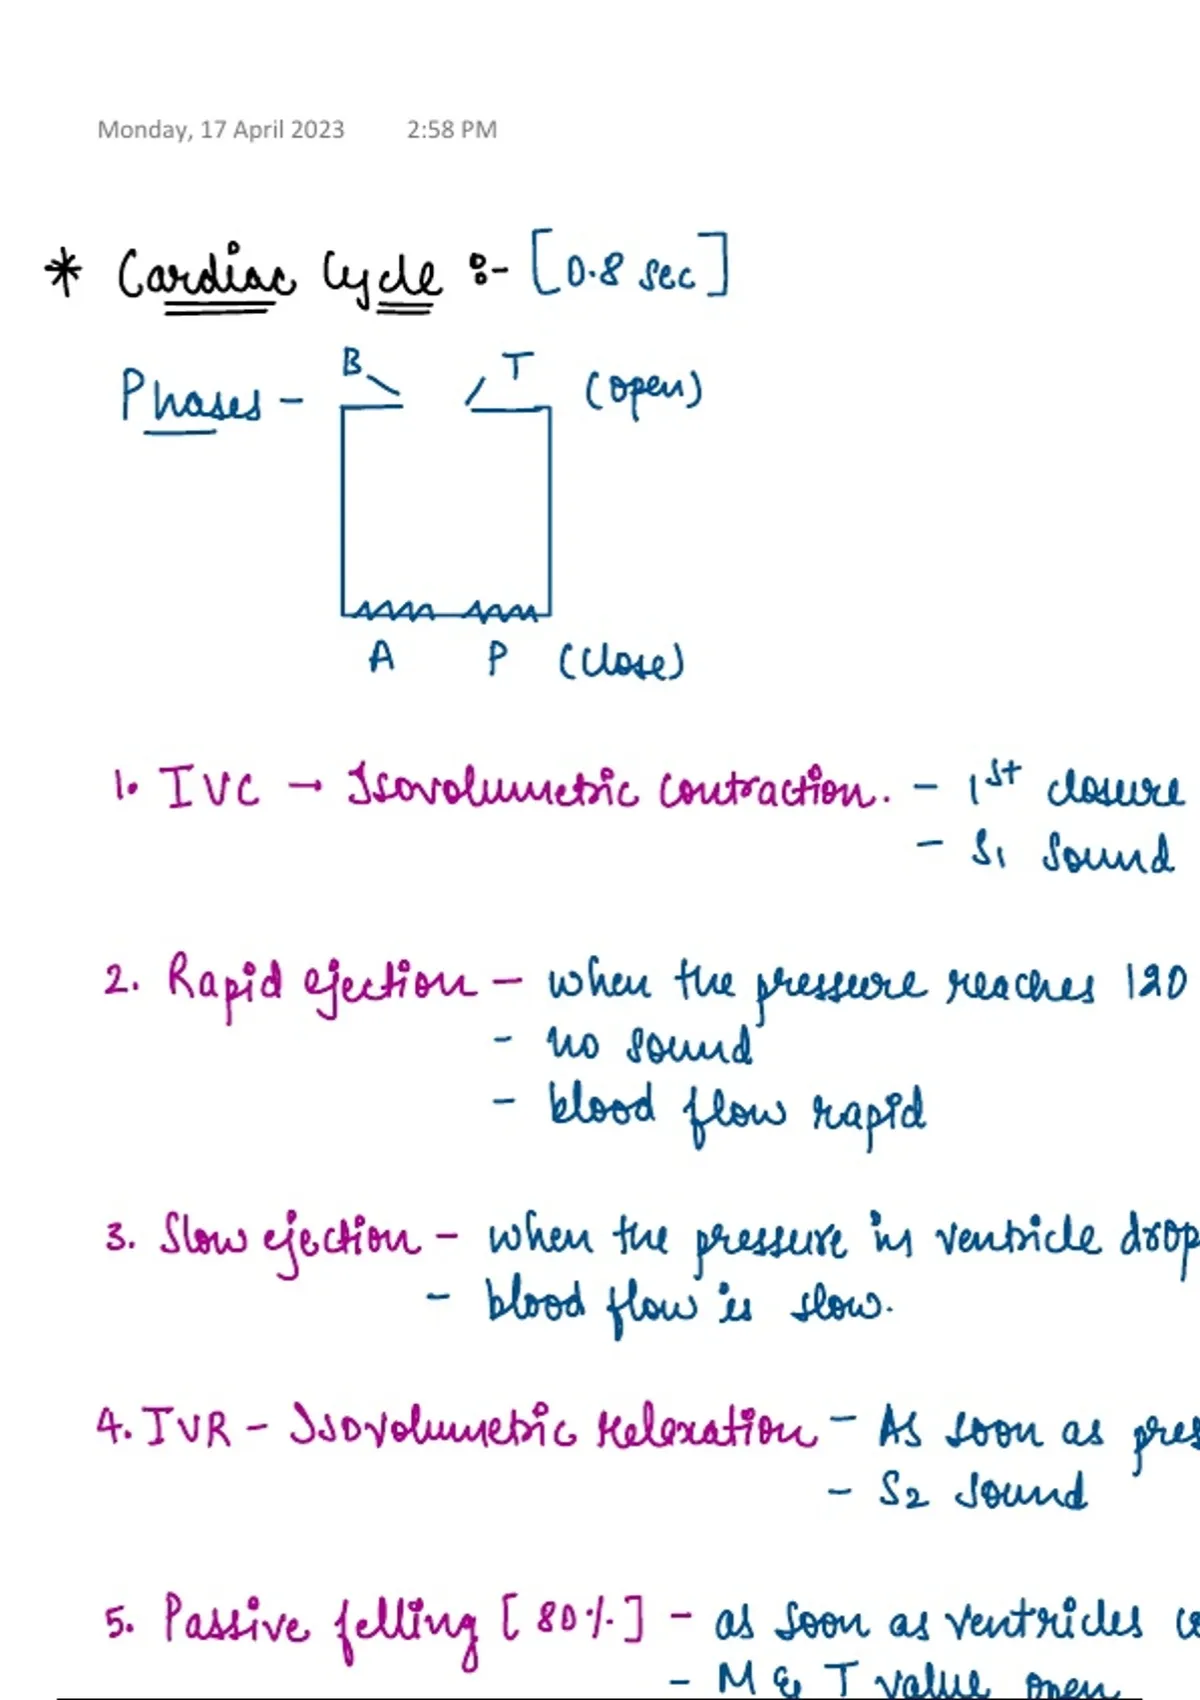 Monday, 17 April 2023 2:58 PM
* Cardiac Cycle :- [0.8 sec]
B T (open)
Phases -
A P (close)
1. IVC → Isovolumetric contraction. - 1st closure
- S1 sound
2. Rapid ejection - when the pressure reaches 120
- no sound
- blood flow rapid
3. Slow ejection - when the pressure in ventricle drop
- blood flow is slow.
4. IVR - Isovolumetric relaxation - As soon as pres
- S2 sound
5. Passive felling [80%] - as soon as ventricles
- M & T value open